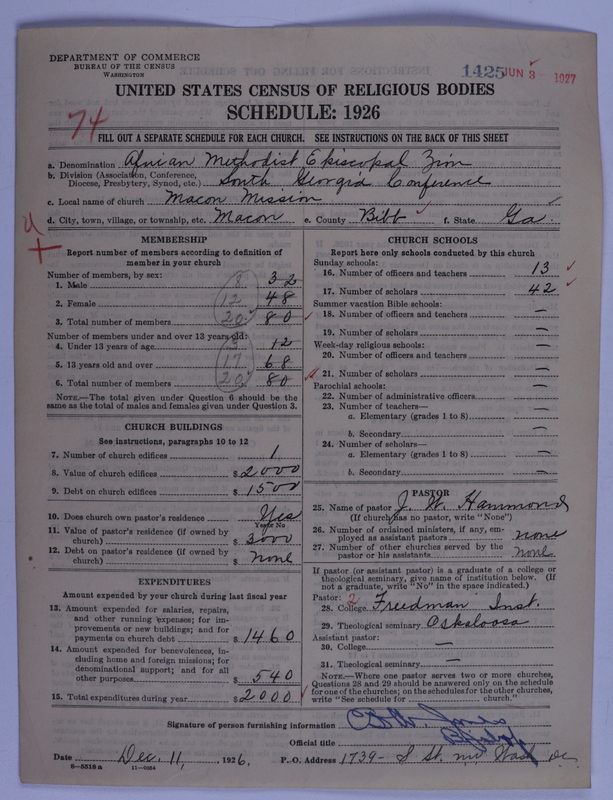 DEPARTMENT OF COMMERCE
BUREAU OF THE CENSUS
WASHINGTON
1425 JUN 3 1927
UNITED STATES CENSUS OF RELIGIOUS BODIES
SCHEDULE: 1926
74
FILL OUT A SEPARATE SCHEDULE FOR EACH CHURCH. SEE INSTRUCTIONS ON THE BACK OF THIS SHEET
a. Denomination African Methodist Episcopal Zion
b. Division (Association, Conference, Diocese, Presbytery, Synod, etc.) South Georgia Conference
c. Local name of church Macon Mission
d. City, town, village, or township, etc. Macon e. County Bibb f. State Ga
MEMBERSHIP
Report number of members according to definition of
member in your church
Number of members, by sex:
1. Male 8 32
2. Female 12 48
3. Total number of members 20 80
Number of members under and over 13 years old:
4. Under 13 years of age 3 12
5. 13 years old and over 17 68
6. Total number of members 20 80
NOTE.—The total given under Question 6 should be the
same as the total of males and females given under Question 3.
CHURCH BUILDINGS
See instructions, paragraphs 10 to 12
7. Number of church edifices 1
8. Value of church edifices $ 2000
9. Debt on church edifices $ 1500
10. Does church own pastor's residence Yes
Yes or No
11. Value of pastor's residence (if owned by
church) $ 3000
12. Debt on pastor's residence (if owned by
church) $ none
EXPENDITURES
Amount expended by your church during last fiscal year
13. Amount expended for salaries, repairs,
and other running expenses; for im-
provements or new buildings; and for
payments on church debt $ 1460
14. Amount expended for benevolences, in-
cluding home and foreign missions; for
denominational support; and for all
other purposes $ 540
15. Total expenditures during year $ 2000
CHURCH SCHOOLS
Report here only schools conducted by this church
Sunday schools:
16. Number of officers and teachers 13
17. Number of scholars 42
Summer vacation Bible schools:
18. Number of officers and teachers —
19. Number of scholars —
Week-day religious schools:
20. Number of officers and teachers —
21. Number of scholars —
Parochial schools:
22. Number of administrative officers —
23. Number of teachers—
a. Elementary (grades 1 to 8) —
b. Secondary —
24. Number of scholars—
a. Elementary (grades 1 to 8) —
b. Secondary —
PASTOR
25. Name of pastor J. W. Hammond
(If church has no pastor, write "None")
26. Number of ordained ministers, if any, em-
ployed as assistant pastors none
27. Number of other churches served by the
pastor or his assistants none
If pastor (or assistant pastor) is a graduate of a college or
theological seminary, give name of institution below. (If
not a graduate, write "No" in the space indicated.)
Pastor: 2
28. College Freedman Inst.
29. Theological seminary Oskaloosa
Assistant pastor:
30. College —
31. Theological seminary —
NOTE.—Where one pastor serves two or more churches,
Questions 28 and 29 should be answered only on the schedule
for one of the churches; on the schedules for the other churches,
write "See schedule for church."
Signature of person furnishing information Jones
Official title Bishop
Date Dec. 11, 1926. P. O. Address 1739- S St. nw Wash DC
8—5518 a 11—9054